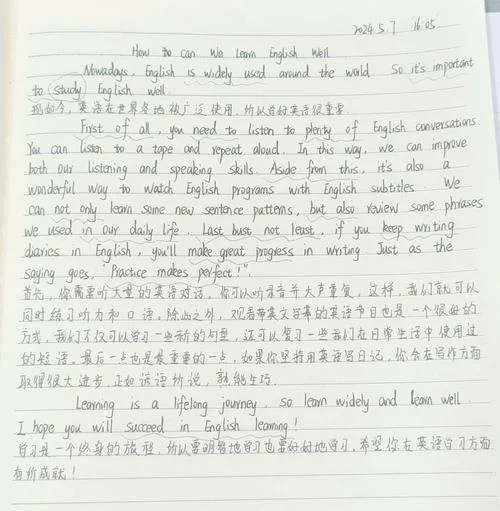 2024.5.7 16:05
How to can We Learn English Well
Nowadays, English is widely used around the world. So it's important
to study English well.
现如今,英语在世界各地被广泛使用,所以学好英语很重要.
First of all, you need to listen to plenty of English conversations.
You can listen to a tape and repeat aloud. In this way, we can improve
both our listening and speaking skills. Aside from this, it's also a
wonderful way to watch English programs with English subtitles. We
can not only learn some new sentence patterns, but also review some phrases
we used in our daily life. Last bust not least, if you keep writing
diaries in English, you'll make great progress in writing Just as the
saying goes, "Practice makes perfect!".
首先,你需要听大量的英语对话,你可以听录音并大声重复,这样,我们就可以
同时练习听力和口语,除此之外,观看带英文字幕的英语节目也是一个很好的
方式,我们不仅可以学习一些新的句型,还可以复习一些我们在日常生活中使用过
的短语,最后一点也是最重要的一点,如果你坚持用英语写日记,你会在写作方面
取得很大进步,正如谚语所说,熟能生巧.
Learning is a lifelong journey, so learn widely and learn well.
I hope you will succeed in English learning!
学习是一个终身的旅程,所以要明智地学习也要好好地学习,希望你在英语学习方面
有所成就!